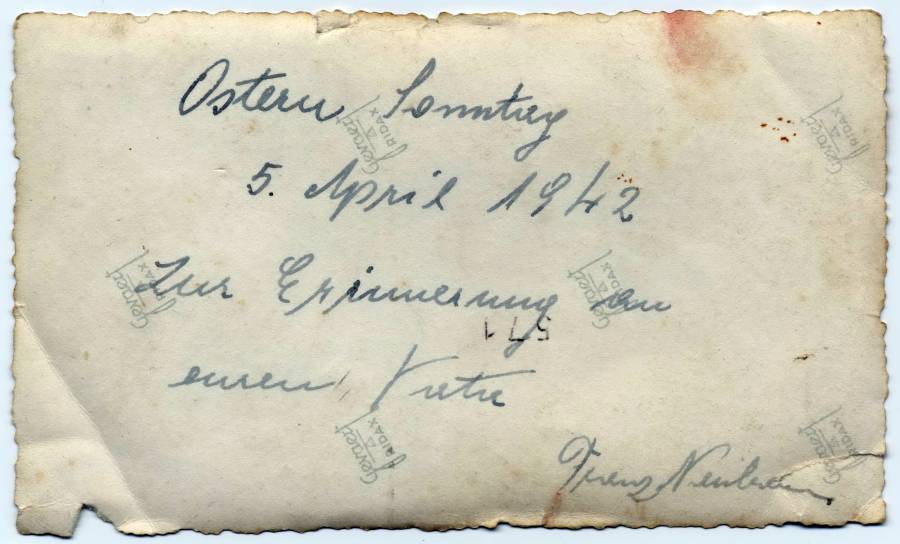 Ostern Sonntag
5. April 1942
Zur Erinnerung an
euren Vater
Franz
571
Gevaert
RIDAX
Gevaert
RIDAX
Gevaert
RIDAX
Gevaert
RIDAX
Gevaert
RIDAX
Gevaert
RIDAX